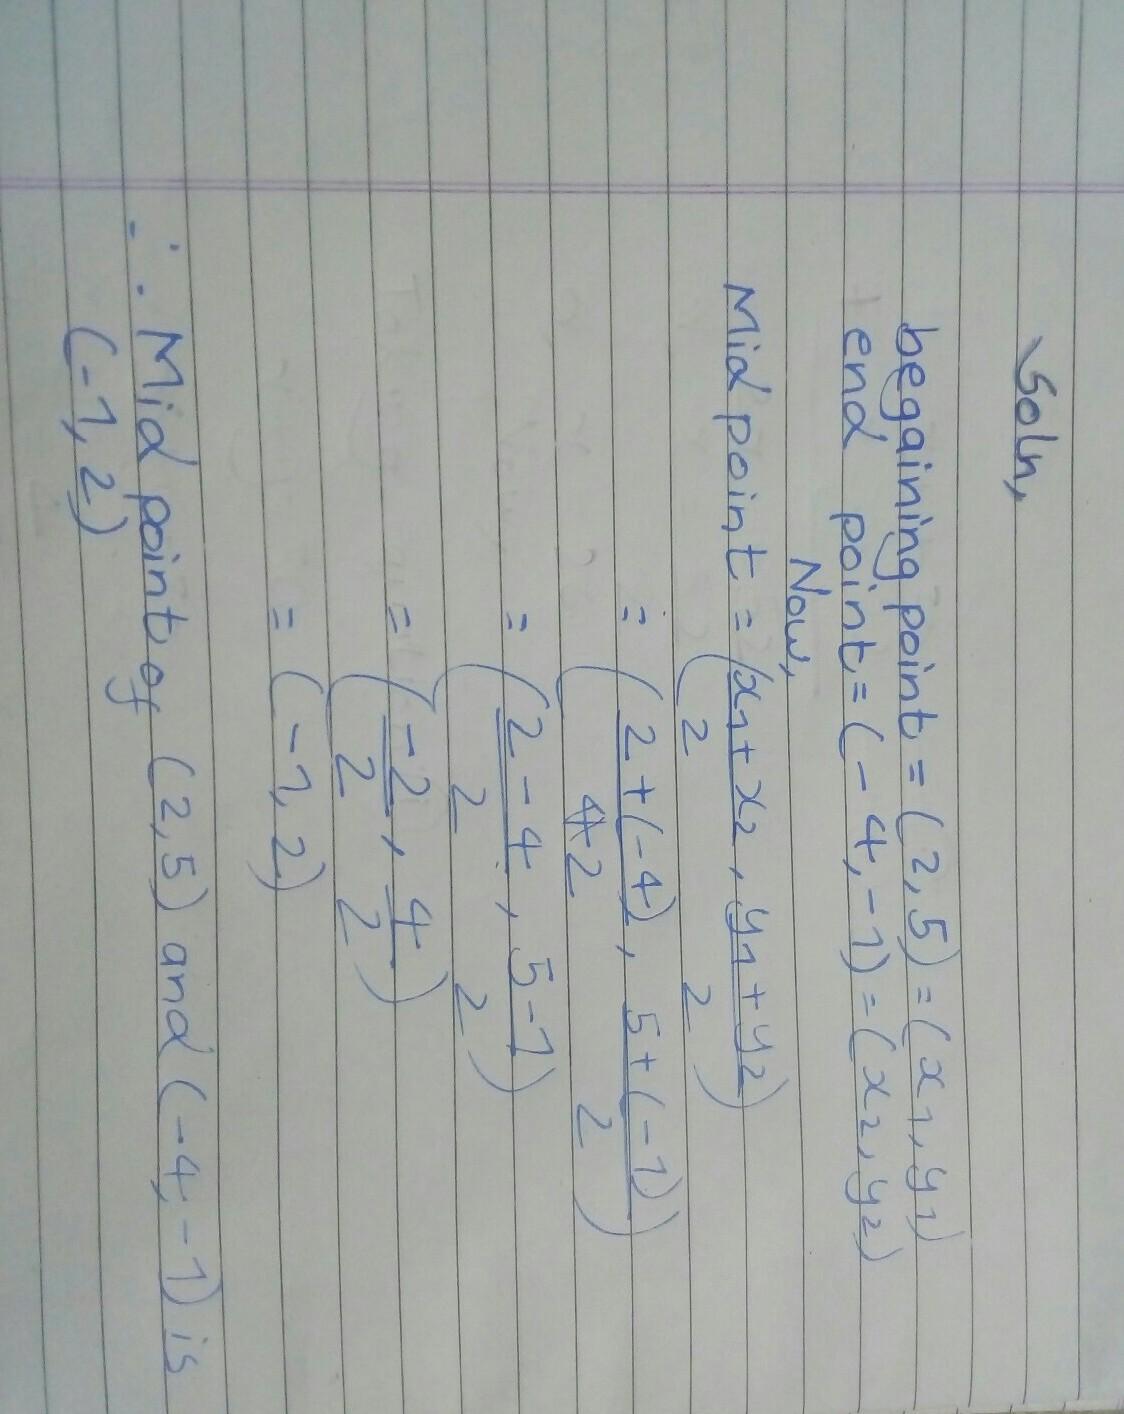 Soln,
begaining point = (2,5) = (x1, y1)
end point = (-4,-1) = (x2, y2)
Now,
Mid point = (x1+x2/2, y1+y2/2)
= (2+(-4)/2, 5+(-1)/2)
= (2-4/2, 5-1/2)
= (-2/2, 4/2)
= (-1, 2)
∴ Mid point of (2,5) and (-4,-1) is
(-1, 2)